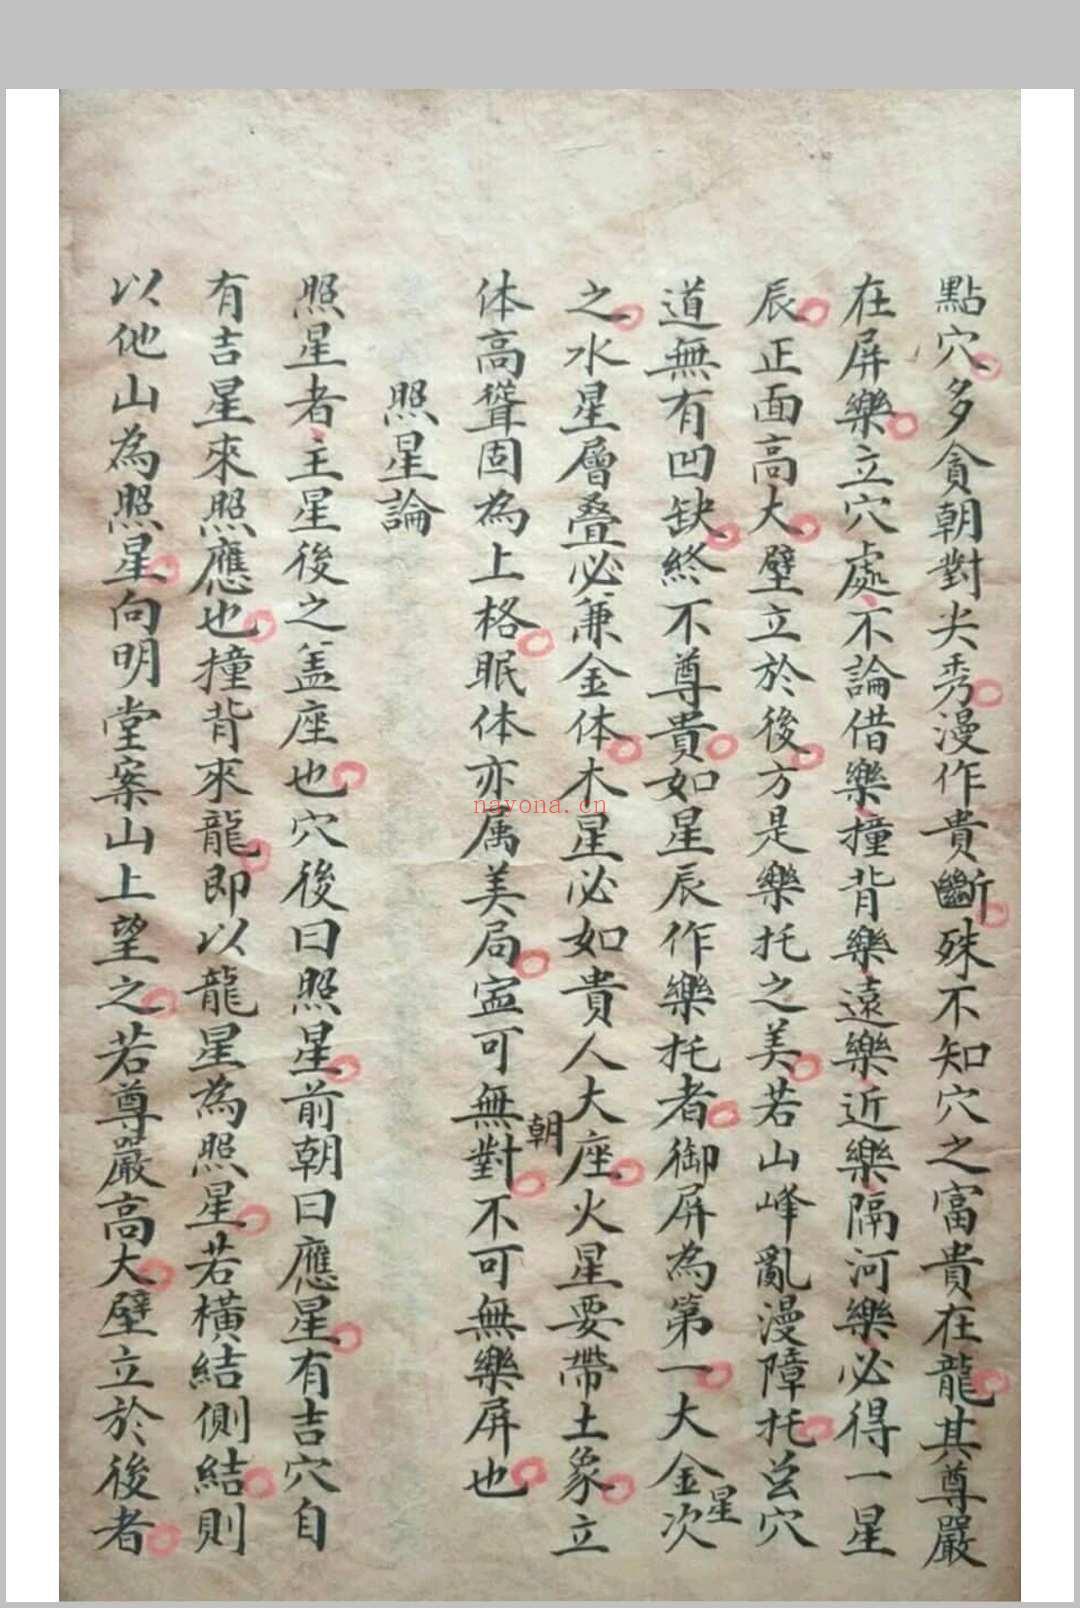 點穴多貪朝對尖秀漫作貴斷殊不知穴之富貴在龍其尊嚴
在屏樂立穴處不論借樂撞背樂遠樂近樂隔河樂必得一星
辰正面高大壁立於後方是樂托之美若山峰亂漫障托玄穴
道無有凹缺終不尊貴如星辰作樂托者御屏為第一大金星次
之水星層叠必兼金体木星必如貴人大座火星要帶土象立
体高聳固為上格眠体亦属美局寍可無朝對不可無樂屏也
照星論
照星者主星後之盖座也穴後曰照星前朝曰應星有吉穴自
有吉星來照應也撞背來龍即以龍星為照星若橫結側結則
以他山為照星向明堂案山上望之若尊嚴高大壁立於後者
nayona.cn